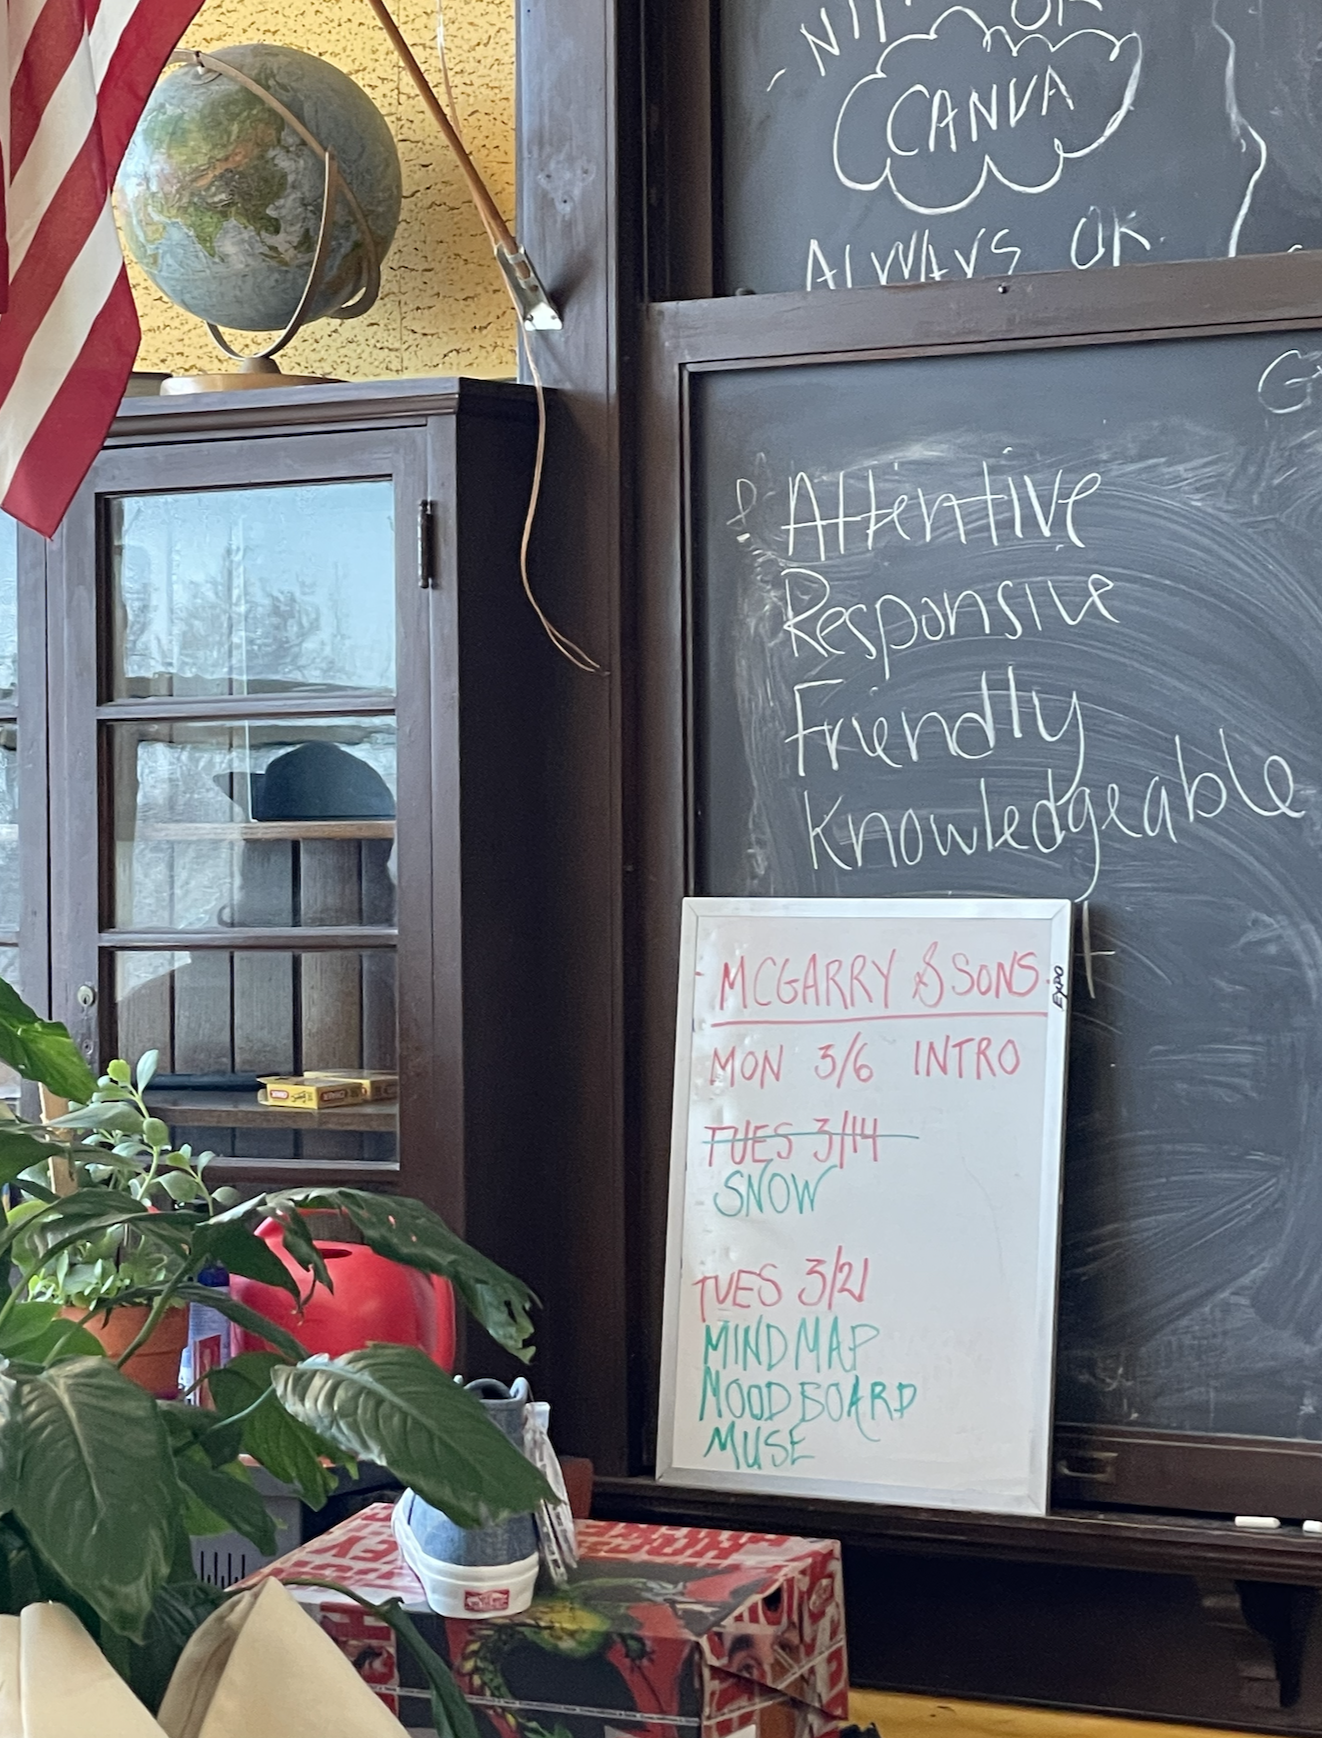 OR
CANVA
ALWAYS OK.
Attentive
Responsive
Friendly
Knowledgeable
MCGARRY & SONS
EXPO
MON 3/6 INTRO
TUES 3/14
SNOW
TUES 3/21
MIND MAP
MOOD BOARD
MUSE